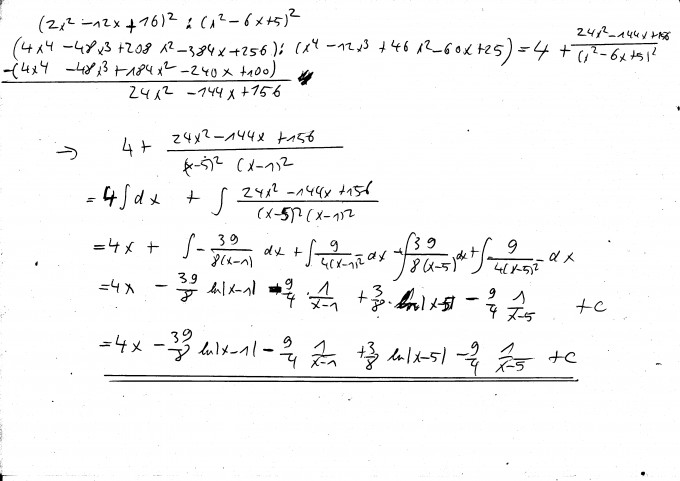 (2x² - 12x + 16)² : (x² - 6x + 5)²
(4x⁴ - 48x³ + 208x² - 384x + 256) : (x⁴ - 12x³ + 46x² - 60x + 25) = 4 + (24x² - 144x + 156)/(x² - 6x + 5)²
-(4x⁴ - 48x³ + 184x² - 240x + 100)
24x² - 144x + 156
→ 4 + (24x² - 144x + 156)/((x-5)² (x-1)²)
= 4∫dx + ∫ (24x² - 144x + 156)/((x-5)² (x-1)²)
= 4x + ∫ - 39/(8(x-1)) dx + ∫ 9/(4(x-1)²) dx + ∫ 39/(8(x-5)) dx + ∫ 9/(4(x-5)²) dx
= 4x - 39/8 ln|x-1| - 9/4 · 1/(x-1) + 3/8 · ln|x-5| - 9/4 1/(x-5) + c
= 4x - 39/8 ln|x-1| - 9/4 1/(x-1) + 3/8 ln|x-5| - 9/4 1/(x-5) + c